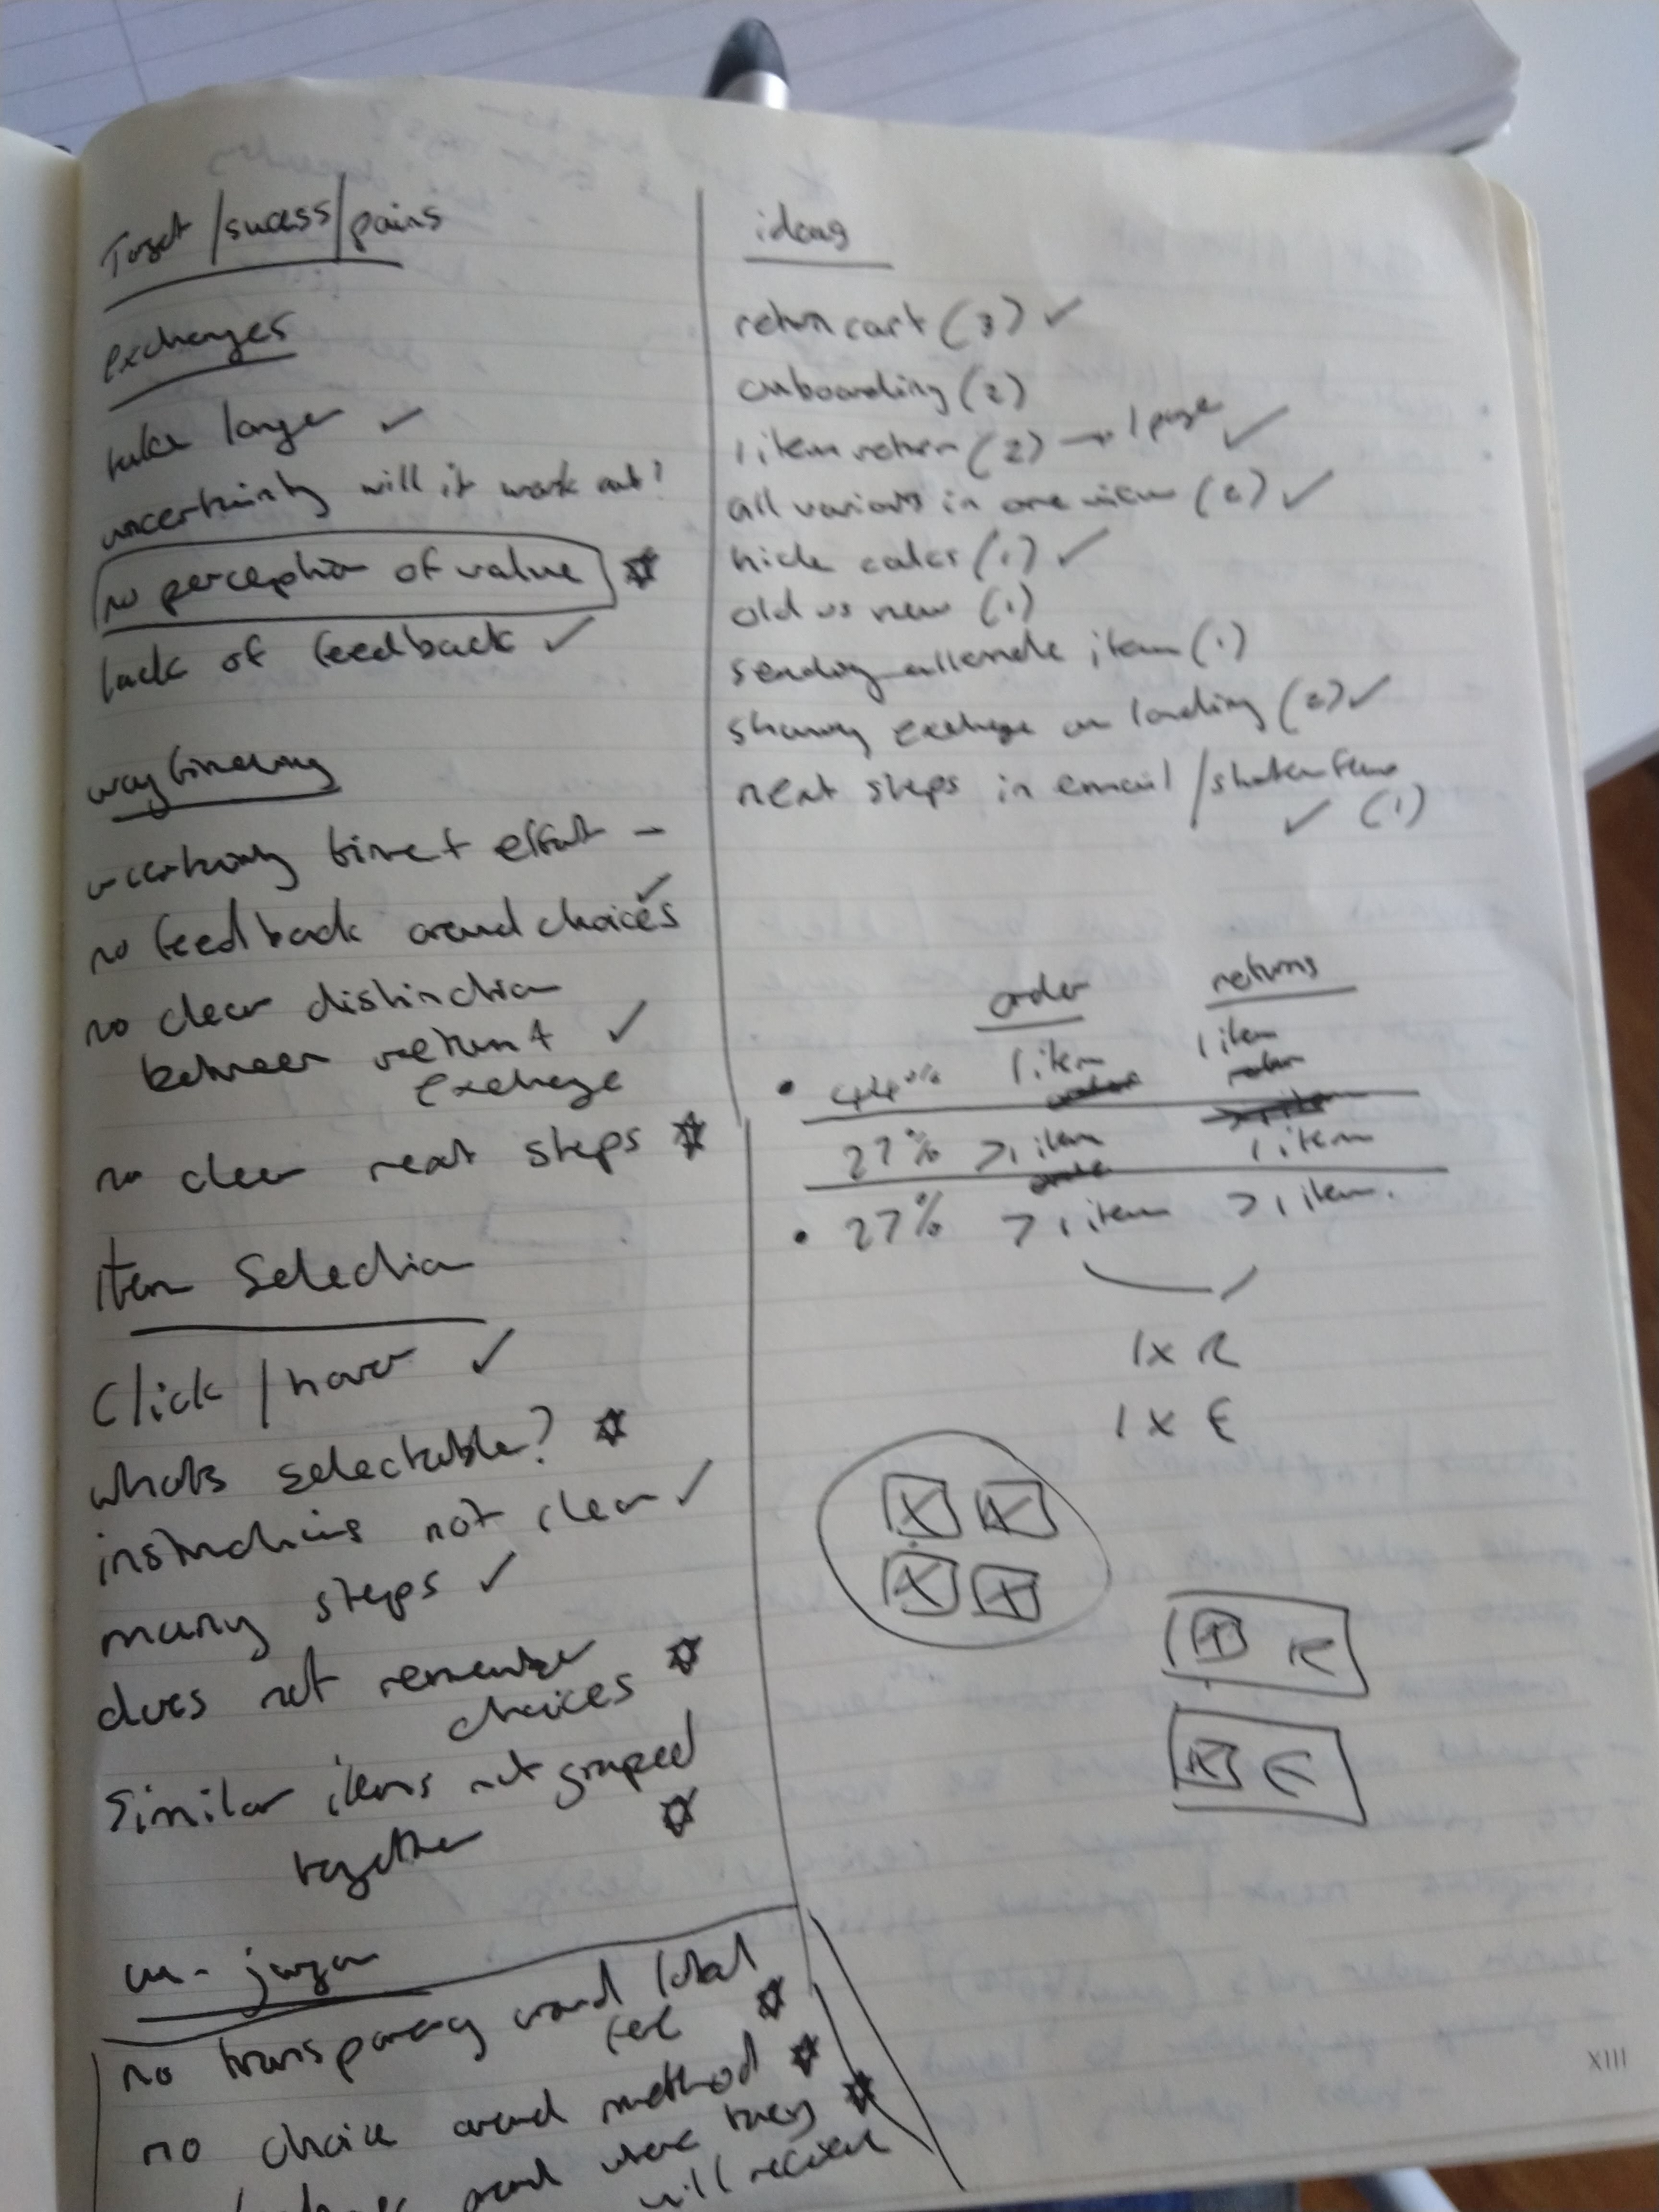 Target / sucess / pains
exchanges
take longer ✓
uncertainty will it work out?
no perception of value ☆
lack of feedback ✓
wayfinding
uncertainty time + effort –
no feedback around choices ✓
no clear distinction
between return + ✓
exchange
no clear next steps ☆
Item Selection
Click / hover ✓
whats selectable? ☆
instructions not clear ✓
many steps ✓
does not remember
choices ☆
Similar items not grouped
together ☆
jargon
no transparency around label
fee ☆
no choice around method ☆
around where they ☆
will receive
ideas
return cart (3) ✓
onboarding (2)
1 item return (2) → 1 page ✓
all variants in one view (2) ✓
hide calcs (1) ✓
old vs new (1)
sending alternate item (1)
showing exchange on landing (2) ✓
next steps in email / shorten
✓ (1)
order returns
• 44% 1 item 1 item
27% >1 item 1 item
• 27% >1 item >1 item.
1 x R
1 x E
R
E
XIII